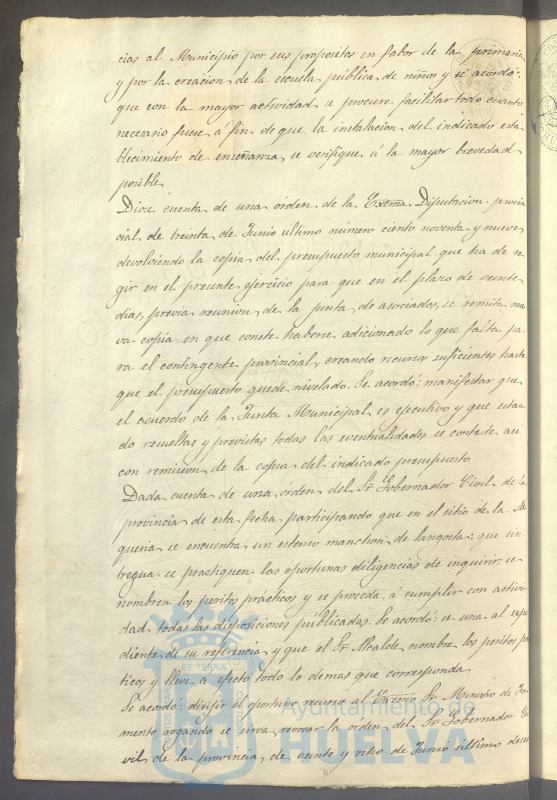 cias al Municipio por sus propositos en fabor de la primaria
y por la creacion de la escuela publica de niños y se acordó:
que con la mayor actividad se procure facilitar todo cuanto
necesario fuese á fin de que la instalacion del indicado esta
blecimiento de enseñanza se verifique á la mayor brevedad
posible
Diose cuenta de una orden de la Exma. Diputacion provin
cial de treinta de Junio ultimo número ciento noventa y nueve
devolviendo la copia del presupuesto municipal que ha de re
gir en el presente ejercicio para que en el plazo de veinte
dias, previa reunion de la junta de asociados, se remita nue
va copia en que conste haberse adicionado lo que falta pa
ra el contingente provincial, creando recursos suficientes hasta
que el presupuesto quede nivelado. Se acordó: manifestar que
el acuerdo de la Junta Municipal es ejecutivo y que estan
do resueltas y previstas todas las eventualidades se conteste asi
con remision de la copia del indicado presupuesto
Dada cuenta de una órden del Sr. Gobernador Civil de la
provincia de esta fecha participando que en el sitio de la Al
queria se encuentra un estenso manchon de langosta: que sin
tregua se practiquen las oportunas diligencias de inquirir, se
nombren los peritos prácticos y se proceda á cumplir con activi
dad todas las disposiciones publicadas. Se acordó: se una al espe
diente de su referencia y que el Sr. Alcalde nombre los peritos prac
ticos y lleve á efecto todo lo demas que corresponda
Se acordó: dirijir el oportuno recurso al Excmo. Sr. Ministro de Fo
mento rogando se sirva revocar la órden del Sr. Gobernador Ci
vil de la provincia de veinte y ocho de Junio ultimo
Ayuntamiento de
HUELVA
ET TERRA